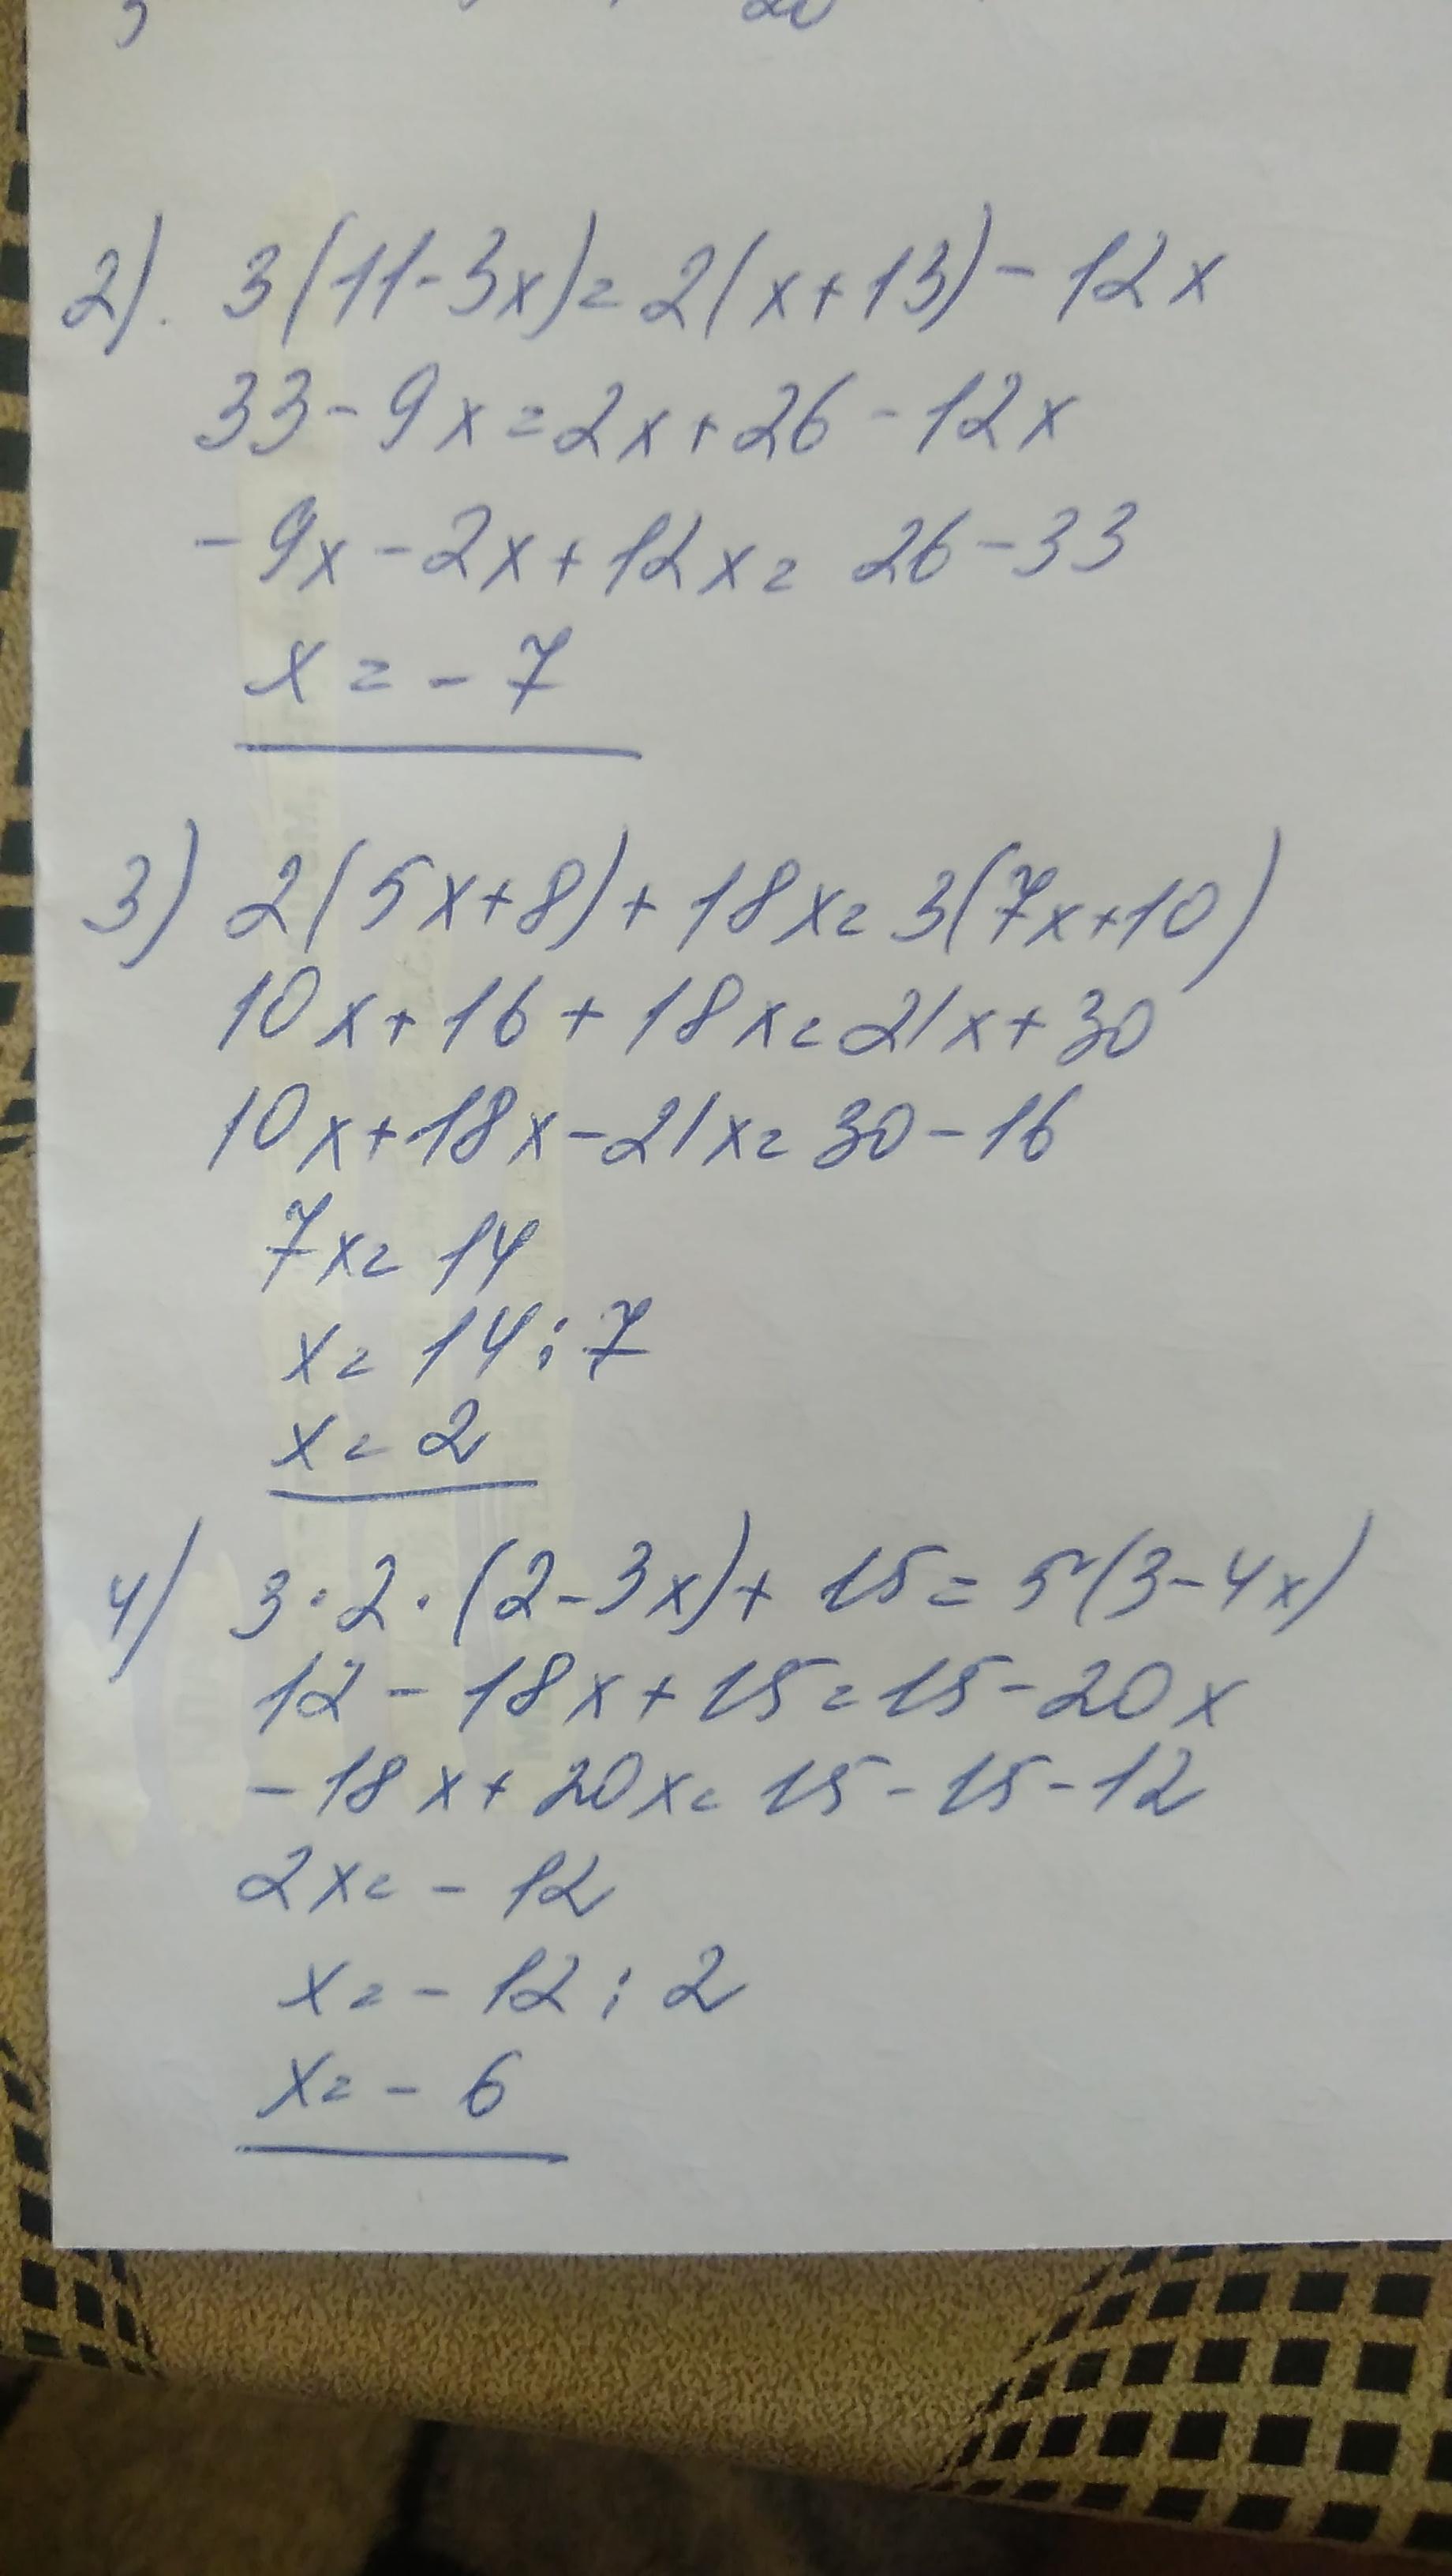 2). 3(11-3x)=2(x+13)-12x
33-9x=2x+26-12x
-9x-2x+12x=26-33
x=-7
3) 2(5x+8)+18x=3(7x+10)
10x+16+18x=21x+30
10x+18x-21x=30-16
7x=14
x=14:7
x=2
4) 3·2·(2-3x)+15=5(3-4x)
12-18x+15=15-20x
-18x+20x=15-15-12
2x=-12
x=-12:2
x=-6